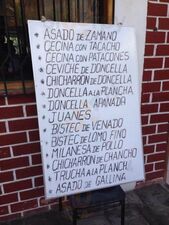 * ASADO DE ZAMANO
* CECINA CON TACACHO
* CECINA CON PATACONES
* CEVICHE DE DONCELLA
* CHICHARRÓN DE DONCELLA
* DONCELLA A LA PLANCHA
* DONCELLA APANADA
* JUANES
* BISTEC DE VENADO
* BISTEC DE LOMO FINO
* MILANESA DE POLLO
* CHICHARRON DE CHANCHO
* TRUCHA A LA PLANCH
* ASADO DE GALLINA